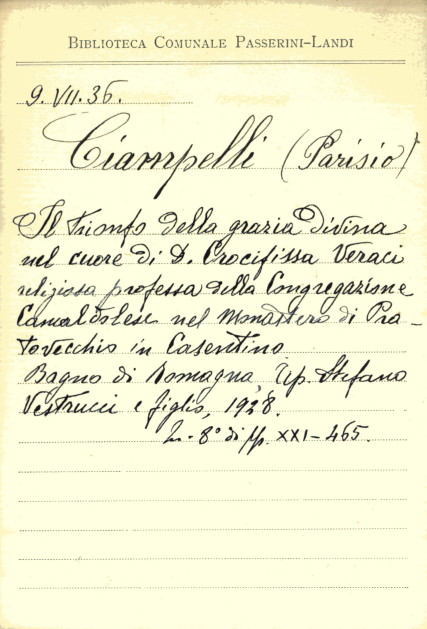 BIBLIOTECA COMUNALE PASSERINI-LANDI
9. VII. 36.
Ciampelli (Parisio)
Il trionfo della grazia divina
nel cuore di D. Crocifissa Veraci
religiosa professa della Congregazione
Camaldolese nel Monastero di Pra-
tovecchio in Casentino
Bagno di Romagna, Tip. Stefano
Vestrucci e figlio, 1928.
In-8° di pp. XXI-465.